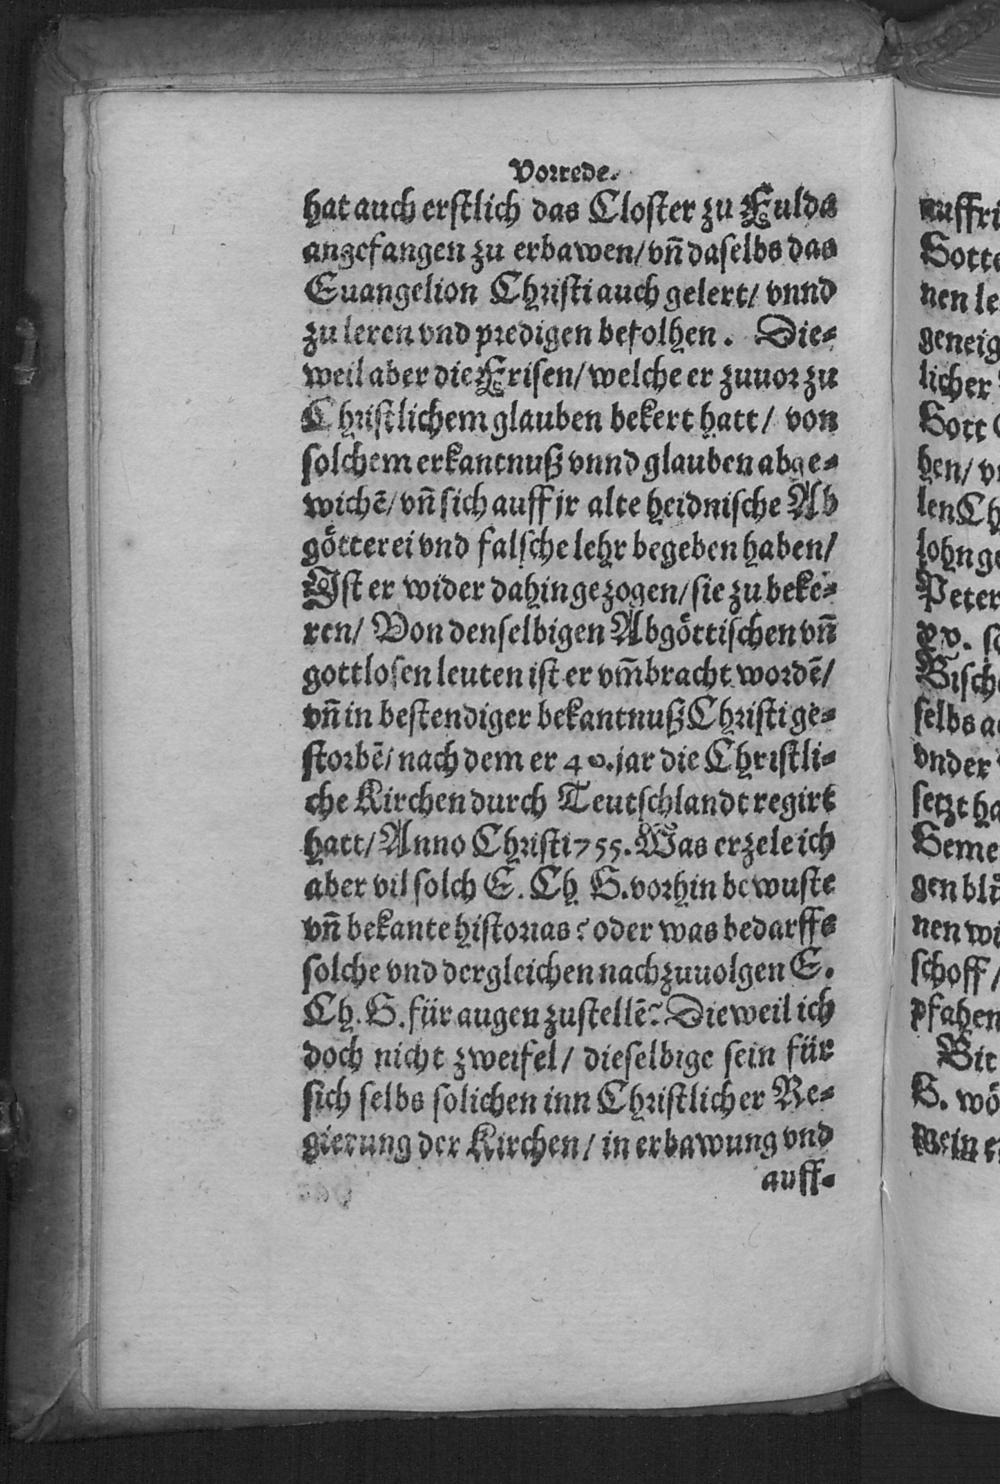 Vorrede.
hat auch erstlich das Closter zu Fulda
angefangen zu erbawen/ vñ daselbs das
Euangelion Christi auch gelert/ vnnd
zu leren vnd predigen befolhen. Die-
weil aber die Frisen/ welche er zuuor zu
Christlichem glauben bekert hatt/ von
solchem erkantnuß vnnd glauben abge-
wichẽ/ vñ sich auff jr alte heidnische Ab
götterei vnd falsche lehr begeben haben/
Ist er wider dahin gezogen/ sie zu beke-
ren/ Von denselbigen Abgöttischen vñ
gottlosen leuten ist er vm̃bracht wordẽ/
vñ in bestendiger bekantnuß Christi ge-
storbẽ/ nach dem er 40. jar die Christli-
che Kirchen durch Teutschlandt regirt
hatt/ Anno Christi 755. Was erzele ich
aber vil solch E. Ch G. vorhin bewuste
vñ bekante historias? oder was bedarffs
solche vnd dergleichen nachzuuolgen E.
Ch. G. für augen zustellẽ? Dieweil ich
doch nicht zweifel/ dieselbige sein für
sich selbs solichen inn Christlicher Re-
gierung der Kirchen/ in erbawung vnd
auff-
auffri
Gotte
nen le
geneig
licher
Gott
hen/ v
len Ch
lohn ge
Peter
xv. s
Bisch
selbs a
vnder
setzt ha
Geme
gen blů
nen wi
schoff/
pfahen
Bit
G. wö
wein e